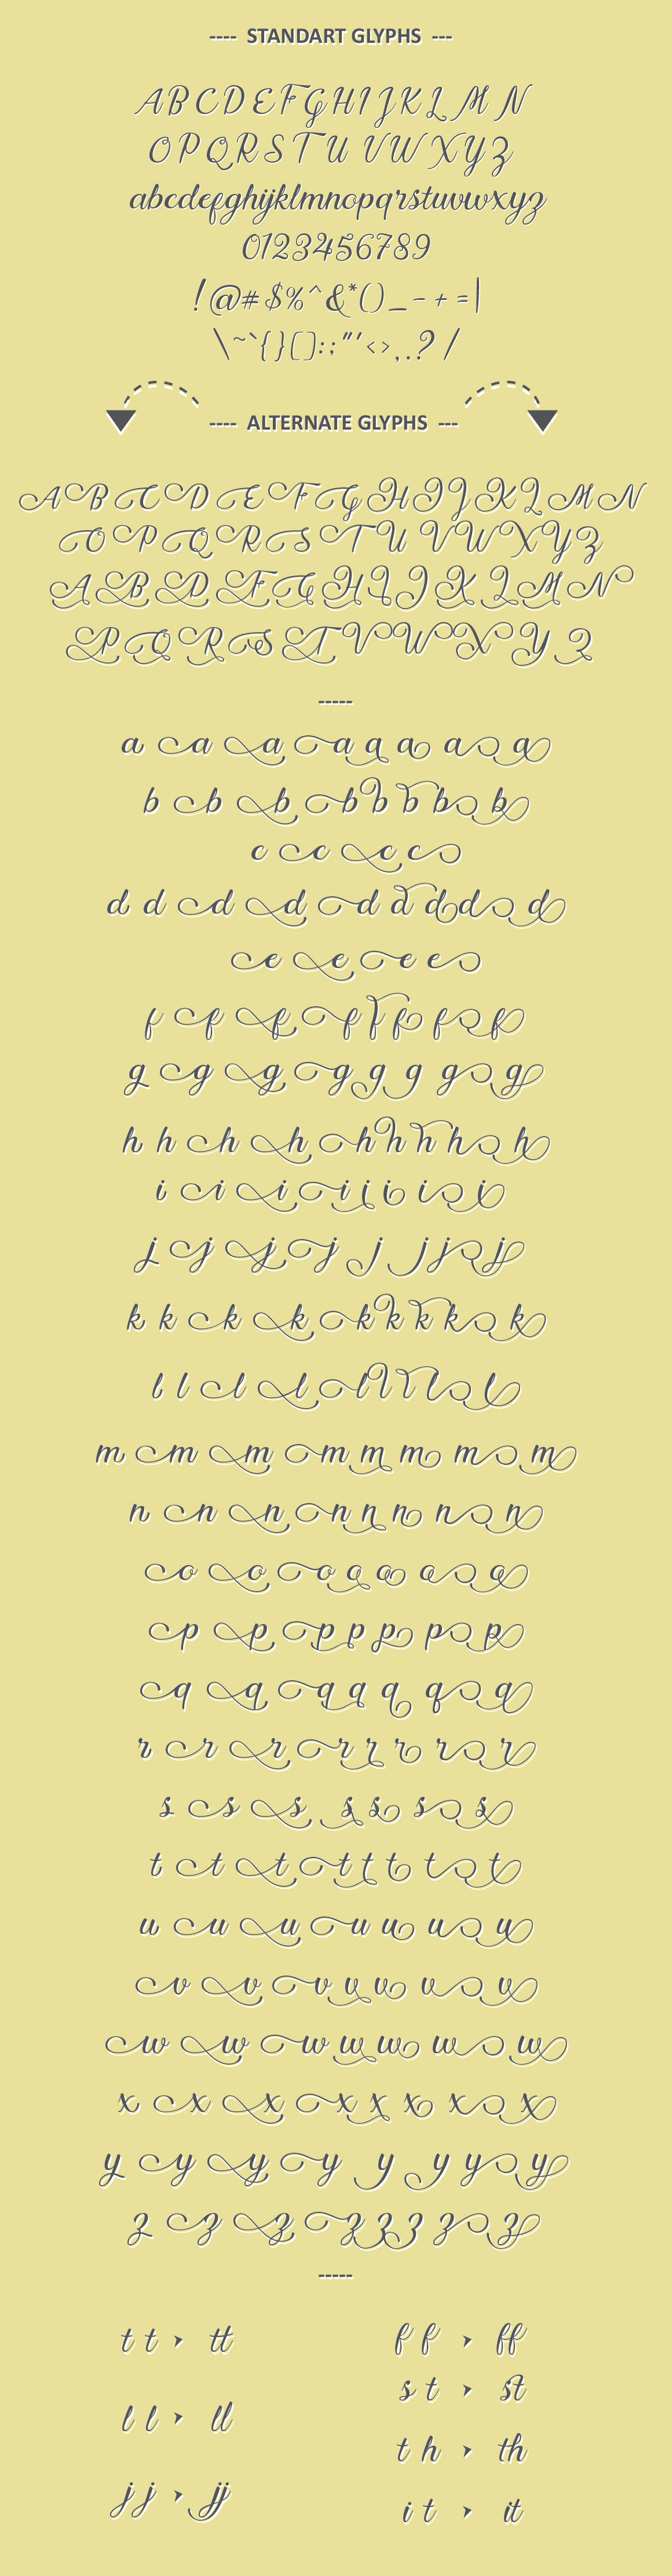 ---- STANDART GLYPHS ---
A B C D E F G H I J K L M N
O P Q R S T U V W X Y Z
abcdefghijklmnopqrstuvwxyz
0123456789
! @ # $ % ^ & * ( ) _ - + = |
\ ~ ` { } [ ] : ; " ' < > , . ? /
---- ALTERNATE GLYPHS ---
A B C D E F G H I J K L M N
O P Q R S T U V W X Y Z
A B D F G H I J K L M N
P Q R S T V W X Y Z
-----
a a a a a a a a
b b b b b b b b
c c c c
d d d d d d d d d
e e e e
f f f f f f f f
g g g g g g g g
h h h h h h h h
i i i i i i i i
j j j j j j j j
k k k k k k k k
l l l l l l l l
m m m m m m m m
n n n n n n n n
o o o o o o o
p p p p p p p
q q q q q q q
r r r r r r r r
s s s s s s s
t t t t t t t t
u u u u u u u
v v v v v v v
w w w w w w w
x x x x x x x x
y y y y y y y y
z z z z z z z z
-----
t t ➤ tt
f f ➤ ff
s t ➤ st
l l ➤ ll
t h ➤ th
j j ➤ jj
i t ➤ it